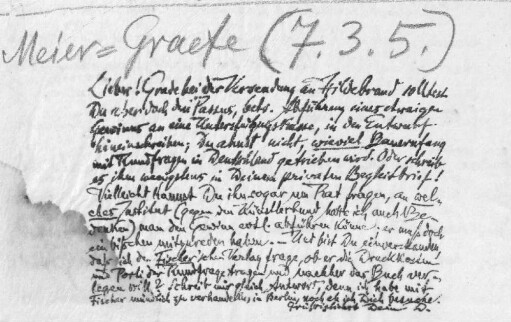 Meier=Graefe (7.3.5.)
Lieber! Grade bei der Versendung an Hildebrand solltest
Du aber doch den Passus, betr. Abführung eines etwaigen
Gewinns an eine Unterstützungskasse, in den Entwurf
hineinschreiben; Du ahnst nicht, wieviel Bauernfang
mit Rundfragen in Deutschland getrieben wird. Oder schreib
es ihm wenigstens in Deinem privaten Begleitbrief!
Vielleicht kannst Du ihn sogar um Rat fragen, an wel-
ches Institut (gegen den Künstlerbund hätte ich auch Be-
denken) man den Gewinn evtl. abführen könne; er muß doch
ein bißchen mitzureden haben. — Und bist Du einverstanden,
daß ich den Fischerschen Verlag frage, ob er die Druckkosten
und Porti der Rundfrage tragen und nachher das Buch ver-
legen will? Schreib mir gleich Antwort, denn ich habe mit
Fischer mündlich zu verhandeln, in Berlin, noch eh ich Dich besuche.
Dein D.